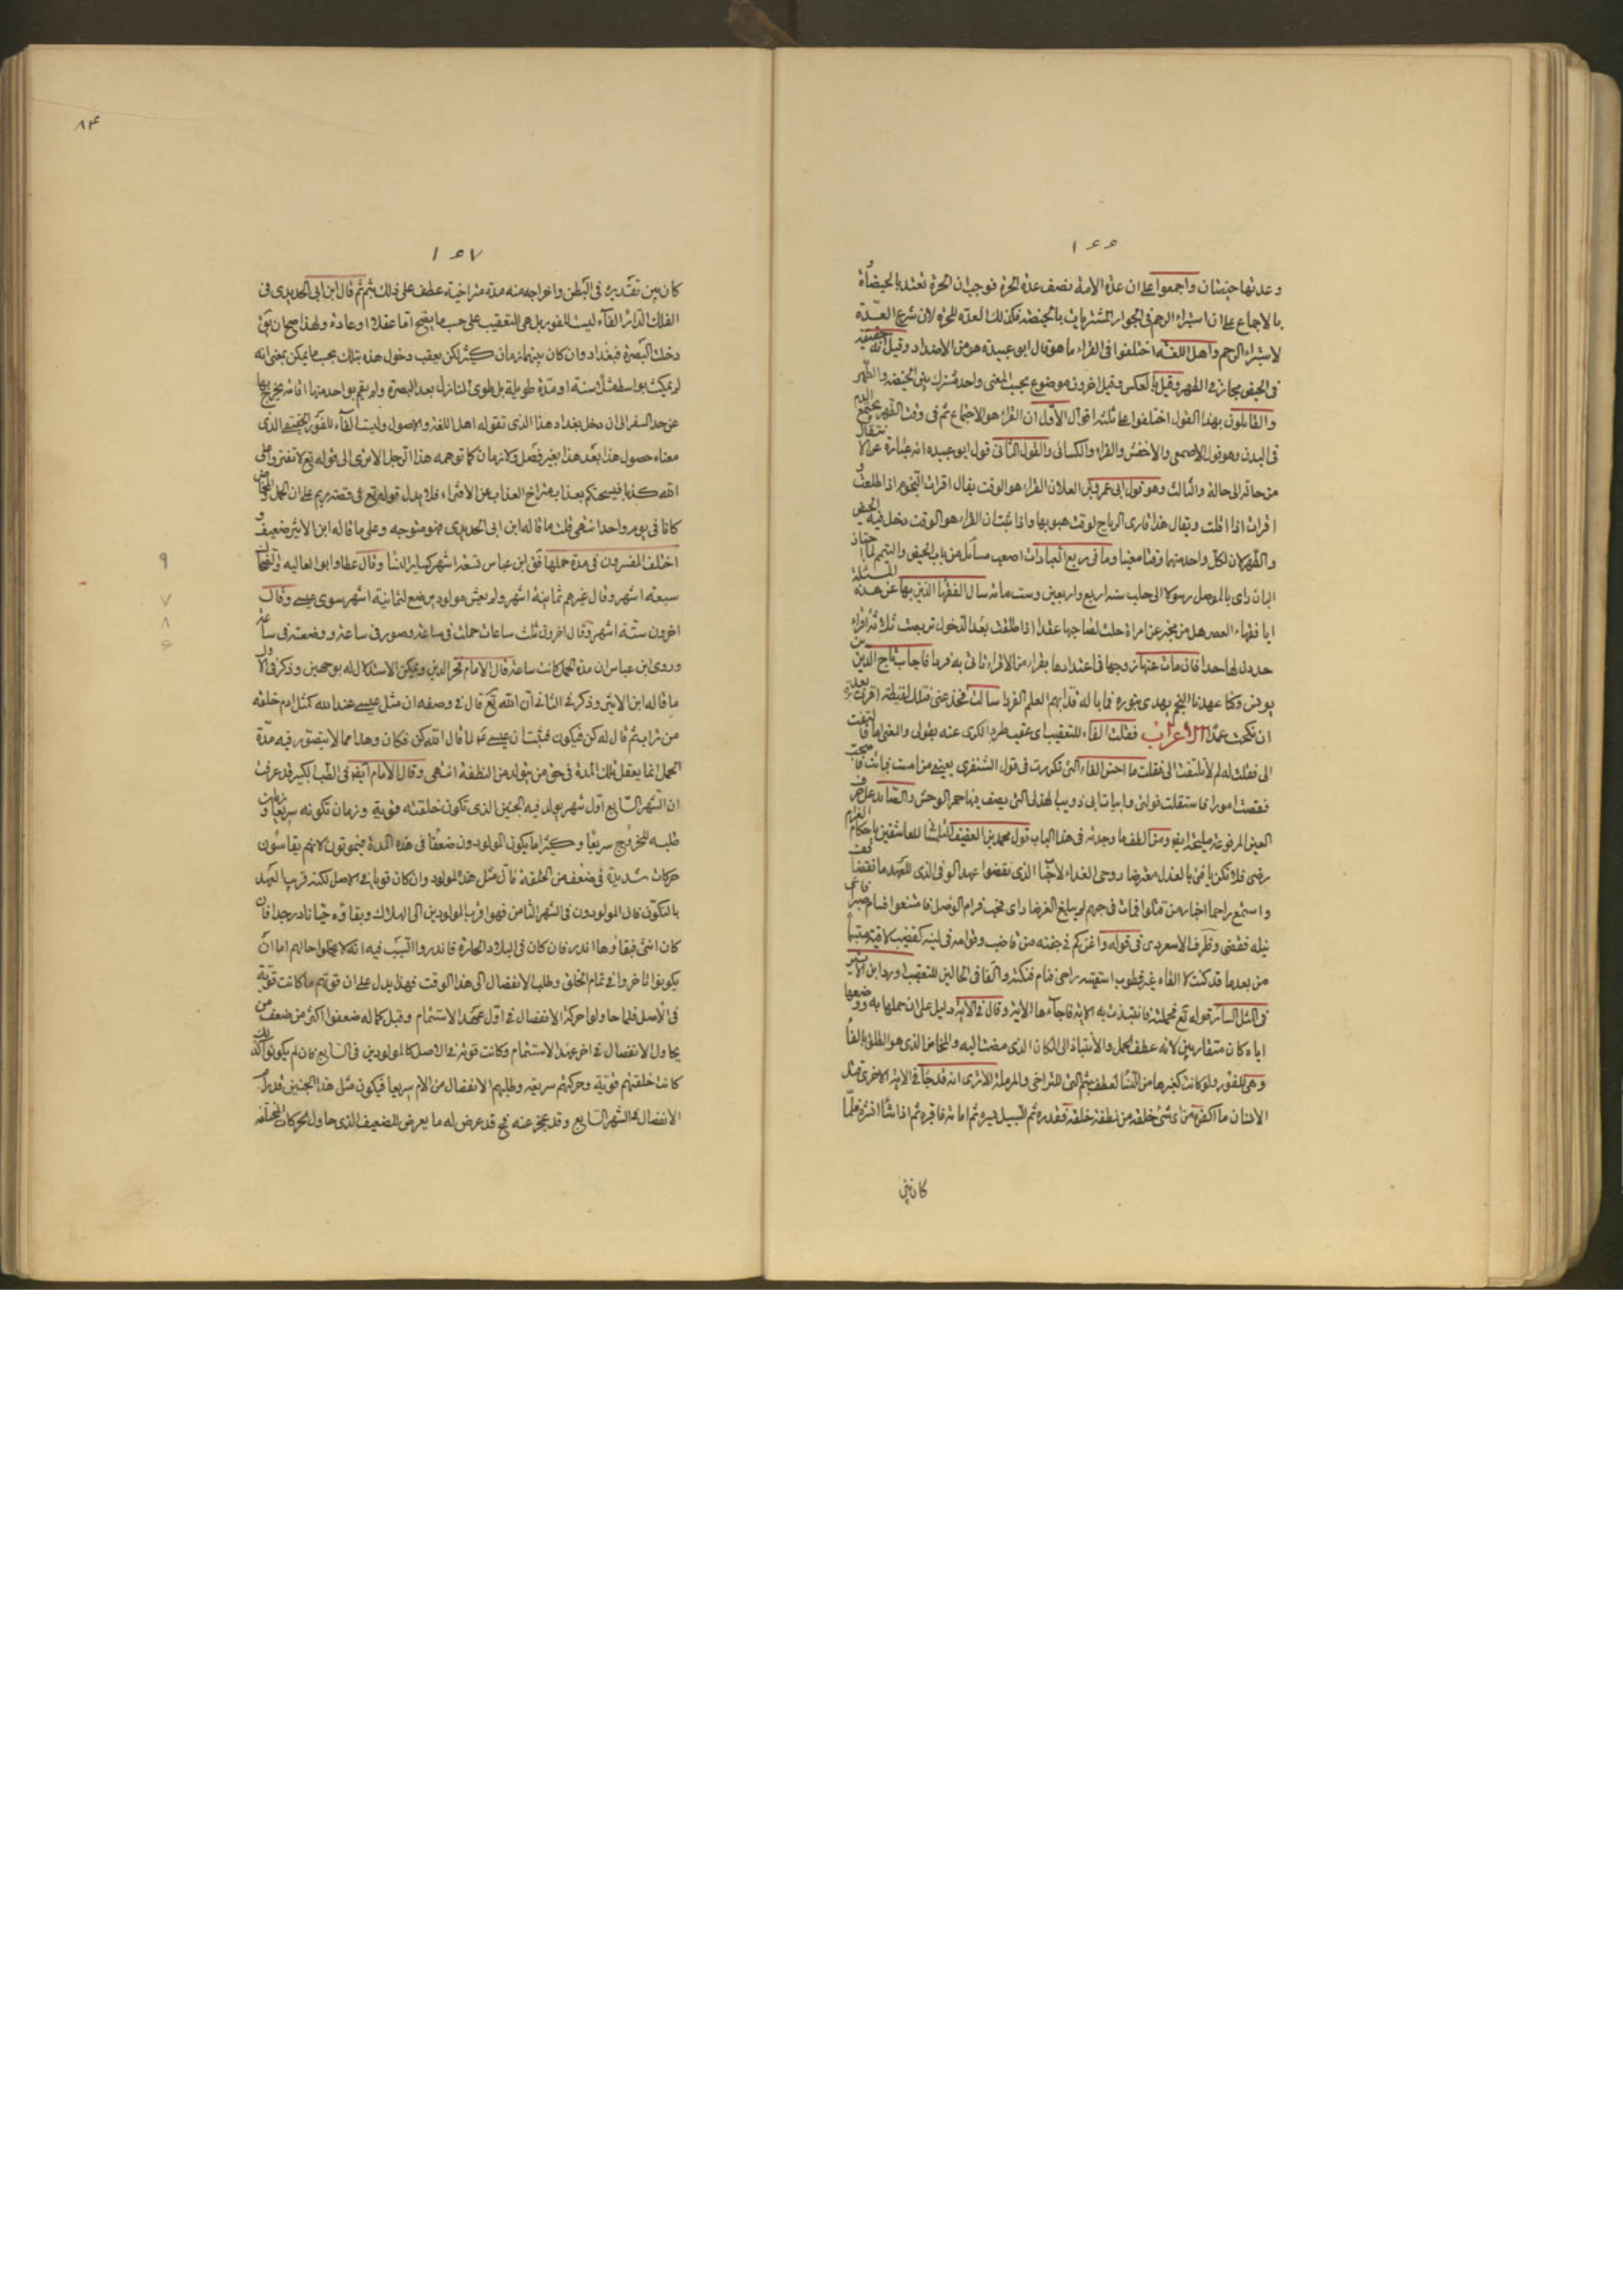 ١٥٦
وعدتها حيضتان واجمعوا على ان عدة الامة نصف عدة الحرة فوجب ان الحرة تعتد بالحيض لا
بالاجماع على ان استبراء الرحم فى الجوار المشتريات بالحيضة فكذلك العدة للحرة لان شرع العدة
لاستبراء الرحم واهل اللغة اختلفوا فى القراء ما هو قال ابو عبيدة هو من الاضداد وقيل انه حقيقة
فى الحيض مجاز فى الطهر وقيل بالعكس وقيل اخرون موضوع بحسب المعنى واحد مشترك بين الحيضة والطهر
والقايلون بهذا القول اختلفوا على ثلثة اقوال الاول ان القراء هو الاجتماع ثم فى وقت الطهر يجتمع الدم
فى البدن وهو قول الاصمعى والاخفش والفراء والكسائى والقول الثانى قول ابو عبيده انه عبارة عن الانتقال
من حالة الى حالة والثالث وهو قول ابى عمرو بن العلا ان القراء هو الوقت يقال اقرات النجوم اذا طلعت و
اقرات اذا افلت ويقال هذا قارى الرياح لوقت هبوبها واذا ثبت ان القراء هو الوقت دخل فيه الحيض
والطهر لان لكل واحد منهما وقتا معينا وما فى ربيع العبادات اصعب مسائل من باب الحيض والتيمم لما اجتاز
البادراى بالموصل رسولا الى حلب سنة اربع واربعين وست مائة سال الفقها الذين بها عن هذه المسئلة
ايا فقهاء العصر هل من مخبر عن امراة حلت لصاحبها عقدا اذا طلقت بعد الدخول تربصت ثلاثة اقراء
حددن لها حدا فان مات عنها زوجها فاعتدادها بقراء من الاقراء تاتى به فردا فاجاب تاج الدين بن
يونس وكنا عهدنا النجم يهدى بنوره فما باله قد ابهم العلم الفردا سالت فخذ عنى فتلك لقيطة اقرت برق بعد
ان نكحت عمدا الاعراب فقلت الفاء للتعقيب اى عقيب طرد الكرى عنه بقولى والمعنى اما التفت
الى فقلت له لم لا تلتفت الى فقلت ما احسن الفاء التى تكررت فى قول الشنفرى
العين المرفوعة مليحة ايضا ومن الطف ما وجدته فى هذا الباب قول محمد بن العفيف التلمسانى للعاشقين باحكام الغرام
رضى فلا تكن يا فتى بالعذل معترضا روحى الفداء لاحبابى الذى نقضوا عهد الوفى الذى للعهد ما نقضا قف
واستمع راحما اخبار من قتلوا فمات فى حبهم لم يبلغ الغرضا راى فحب فرام الوصل فامتنعوا فسام صبرا فاعيى
نيله فقضى وظرف الاسعردى فى قوله
من بعدها قد كنت لا الفاء غير قطوب
فى المثل السائر قوله تع فحملته فانتبذت به الاية فاجاءها الاية وقال فى الاية دليل على ان حملها به ووضعها
اياه كان متقاربين لانه عطف الحمل والانتباذ الى المكان الذى مضت اليه والمخاض الذى هو الطلق بالفا
وهى للفور ولو كانت كغيرها من النسا لعطف بثم التى للتراخى والمهملة الا ترى انه قد جا فى الاية الاخرى قتل
الانسان ما اكفره من اى شئ خلقه من نطفة خلقه فقدره ثم السبيل يسره ثم اماته فاقبره ثم اذا شا انشره فلما
كان بين
٨٤
١٥٧
كان بين تقديره فى البطن واخراجه منه مدة متراخية عطف على ذلك بثم ثم قال ابن ابى الحديد فى
الفلك الداير الفاء ليست للفور بل هى للتعقيب على حسب ما يصح اما عقلا او عادة ولهذا صح ان يق
دخلت البصرة فبغداد وان كان بينهما زمان كثير لكن يعقب دخول هذه بتلك بحسب ما يمكن بمعنى انه
لم يمكث بواسط مثلا سنة او مدة طويلة بل طوى المنازل بعد البصرة ولم يقم بواحد منها اقامة يخرج بها
عن حد السفر الى ان دخل بغداد هذا الذى تقوله اهل اللغة والاصول وليست الفاء للفور الحقيقى الذى
معناه حصول هذا بعد هذا بغير فصل ولا زمان كما توهمه هذا الرجل الا ترى الى قوله تع لا تفتروا على
الله كذبا فيسحتكم بعذاب متراخ العذاب عن الافتراء فلا يدل قوله تع فى قصة مريم على ان الحمل والمخاض
كانا فى يوم واحد انتهى قلت ما قاله ابن ابى الحديد فهو متوجه وعلى ما قاله ابن الاثير ضعيف و
اختلف المفسرون فى مدة حملها فق ابن عباس تسعة اشهر كساير النسا وقال عطا وابو العاليه والضحاك
سبعة اشهر وقال غيرهم ثمانية اشهر ولم يعش مولود يوضع لثمانية اشهر سوى عيسى وقال
اخرون ستة اشهر وقال اخرون ثلث ساعات حملت فى ساعة وصور فى ساعة ووضعته فى ساعة
وروى ابن عباس ان مدة الحمل كانت ساعة قال الامام فخر الدين ويمكن الاستدلال له بوجهين وذكر فى الاول
ما قاله ابن الاثير وذكر فى الثانى ان الله تع قال فى وصفه ان مثل عيسى عند الله كمثل ادم خلقه
من تراب ثم قال له كن فيكون فثبت ان عيسى ع لما قال الله كن فكان وهذا مما لا يتصور فيه مدة
الحمل انما يعقل تلك المدة فى حق من يتولد من النطفة انتهى وقال الامام ايضا فى الطب الكبير قد عرفت
ان الشهر السابع اول شهر يولد فيه الجنين الذى تكون خلقته قوية وزمان تكونه سريعا وزمان
طلبه للخروج سريعا وكثيرا ما يكون المولودون ضعفا فى هذه المدة فيموتون لانهم يقاسون
حركات شديدة فى ضعف من الخلقة فان مثل هذا المولود وان كان قويا فى الاصل لكنه قريب العهد
بالتكون فان المولودون فى الشهر الثامن فهو اقرب المولودين الى الهلاك وبقاؤه حيا نادر جدا فان
كان انثى فبقاوها اندر فان كان فى البلاد الحارة فاندر والسبب فيه انه لا يخلوا حالهم اما ان
يكونوا تاخروا فى تمام الخلق وطلب الانفصال الى هذا الوقت فهذا يدل على ان قوتهم ما كانت قوية
فى الاصل فلما حاولوا حركة الانفصال فى اول عهد الاستتمام وقبل كماله ضعفوا اكثر من ضعف من
يحاول الانفصال فى اخر عهد الاستتمام وكانت قوته فى الاصل كالمولودين فى السابع فان لم يكونوا كذلك
كانت خلقتهم قوية وحركتهم سريعة وطلبهم الانفصال من الام سريعا فيكون مثل هذا الجنين قد رام
الانفصال فى الشهر السابع وقد عجز عنه فح قد عرض له ما يعرض للضعيف الذى حاول الحركات المختلفة
٩
٧
٨
٦